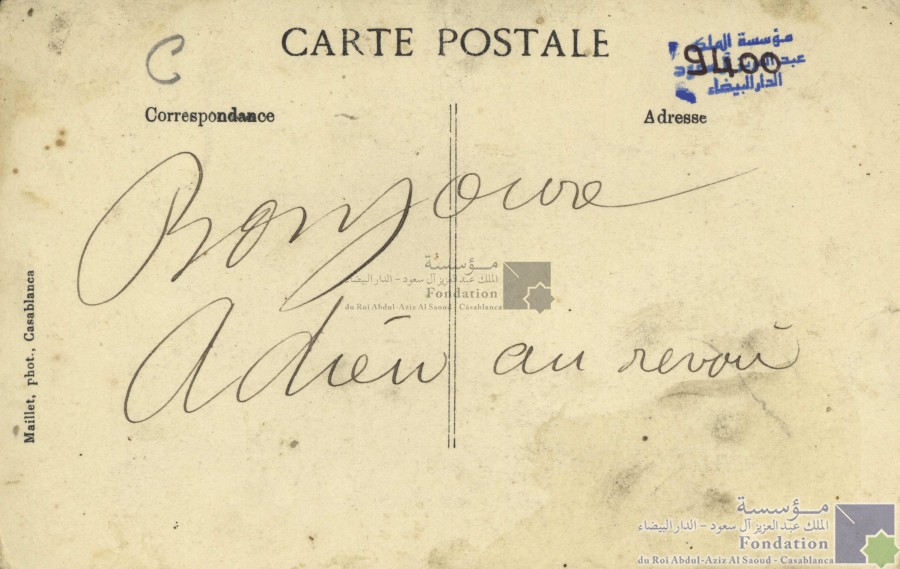 C
CARTE POSTALE
مؤسسة الملك
عبد العزيز آل سعود
الدار البيضاء
9400
Correspondance
Adresse
Bonjour
Adieu au revoir
Maillet, phot., Casablanca
مؤسسة
الملك عبد العزيز آل سعود – الدار البيضاء
Fondation
du Roi Abdul-Aziz Al Saoud - Casablanca
مؤسسة
الملك عبد العزيز آل سعود – الدار البيضاء
Fondation
du Roi Abdul-Aziz Al Saoud - Casablanca